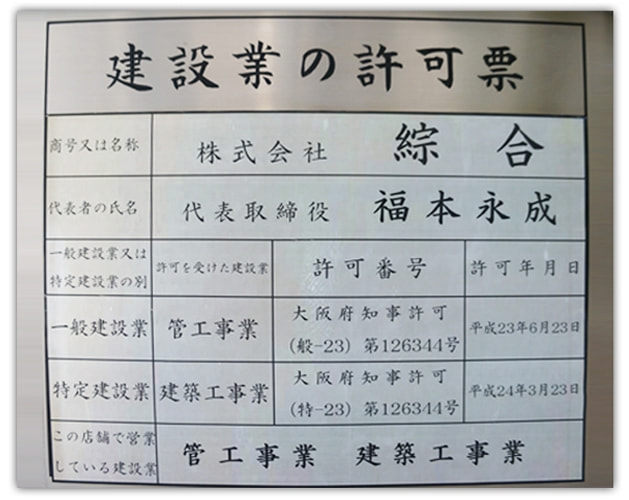 建設業の許可票
商号又は名称 株式会社 綜合
代表者の氏名 代表取締役 福本永成
一般建設業又は
特定建設業の別 許可を受けた建設業 許可番号 許可年月日
一般建設業 管工事業 大阪府知事許可
(般-23) 第126344号 平成23年6月23日
特定建設業 建築工事業 大阪府知事許可
(特-23) 第126344号 平成24年3月23日
この店舗で営業
している建設業 管工事業 建築工事業